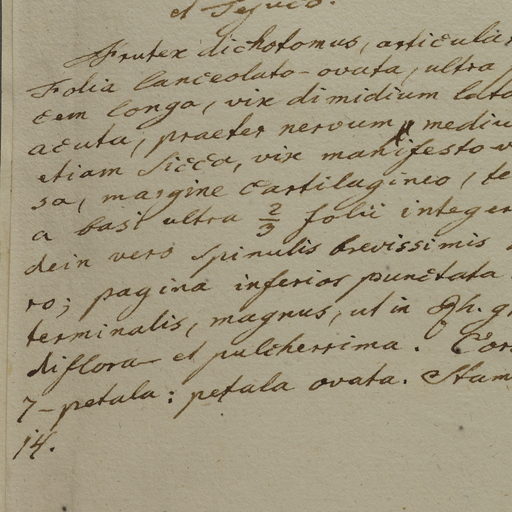 et Tejuco.
Frutex dichotomus, articular
Folia lanceolato-ovata, ultra
cem longa, vix dimidium lata
acuta, praeter nervum mediu
etiam sicca, vix manifesto v
sa, margine cartilagineo, te
a basi ultra 2/3 folii integer
dein vero spinulis brevissimis
ro; pagina inferior punctata
terminalis, magnus, ut in Gh. gr
diflora et pulcherrima. Cor
7-petala: petala ovata. Stam
14.